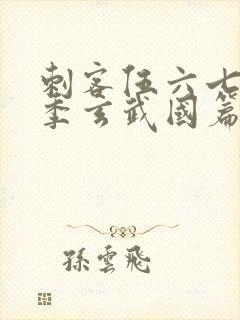 刺客伍六七
季玄武國篇
孫雲飛